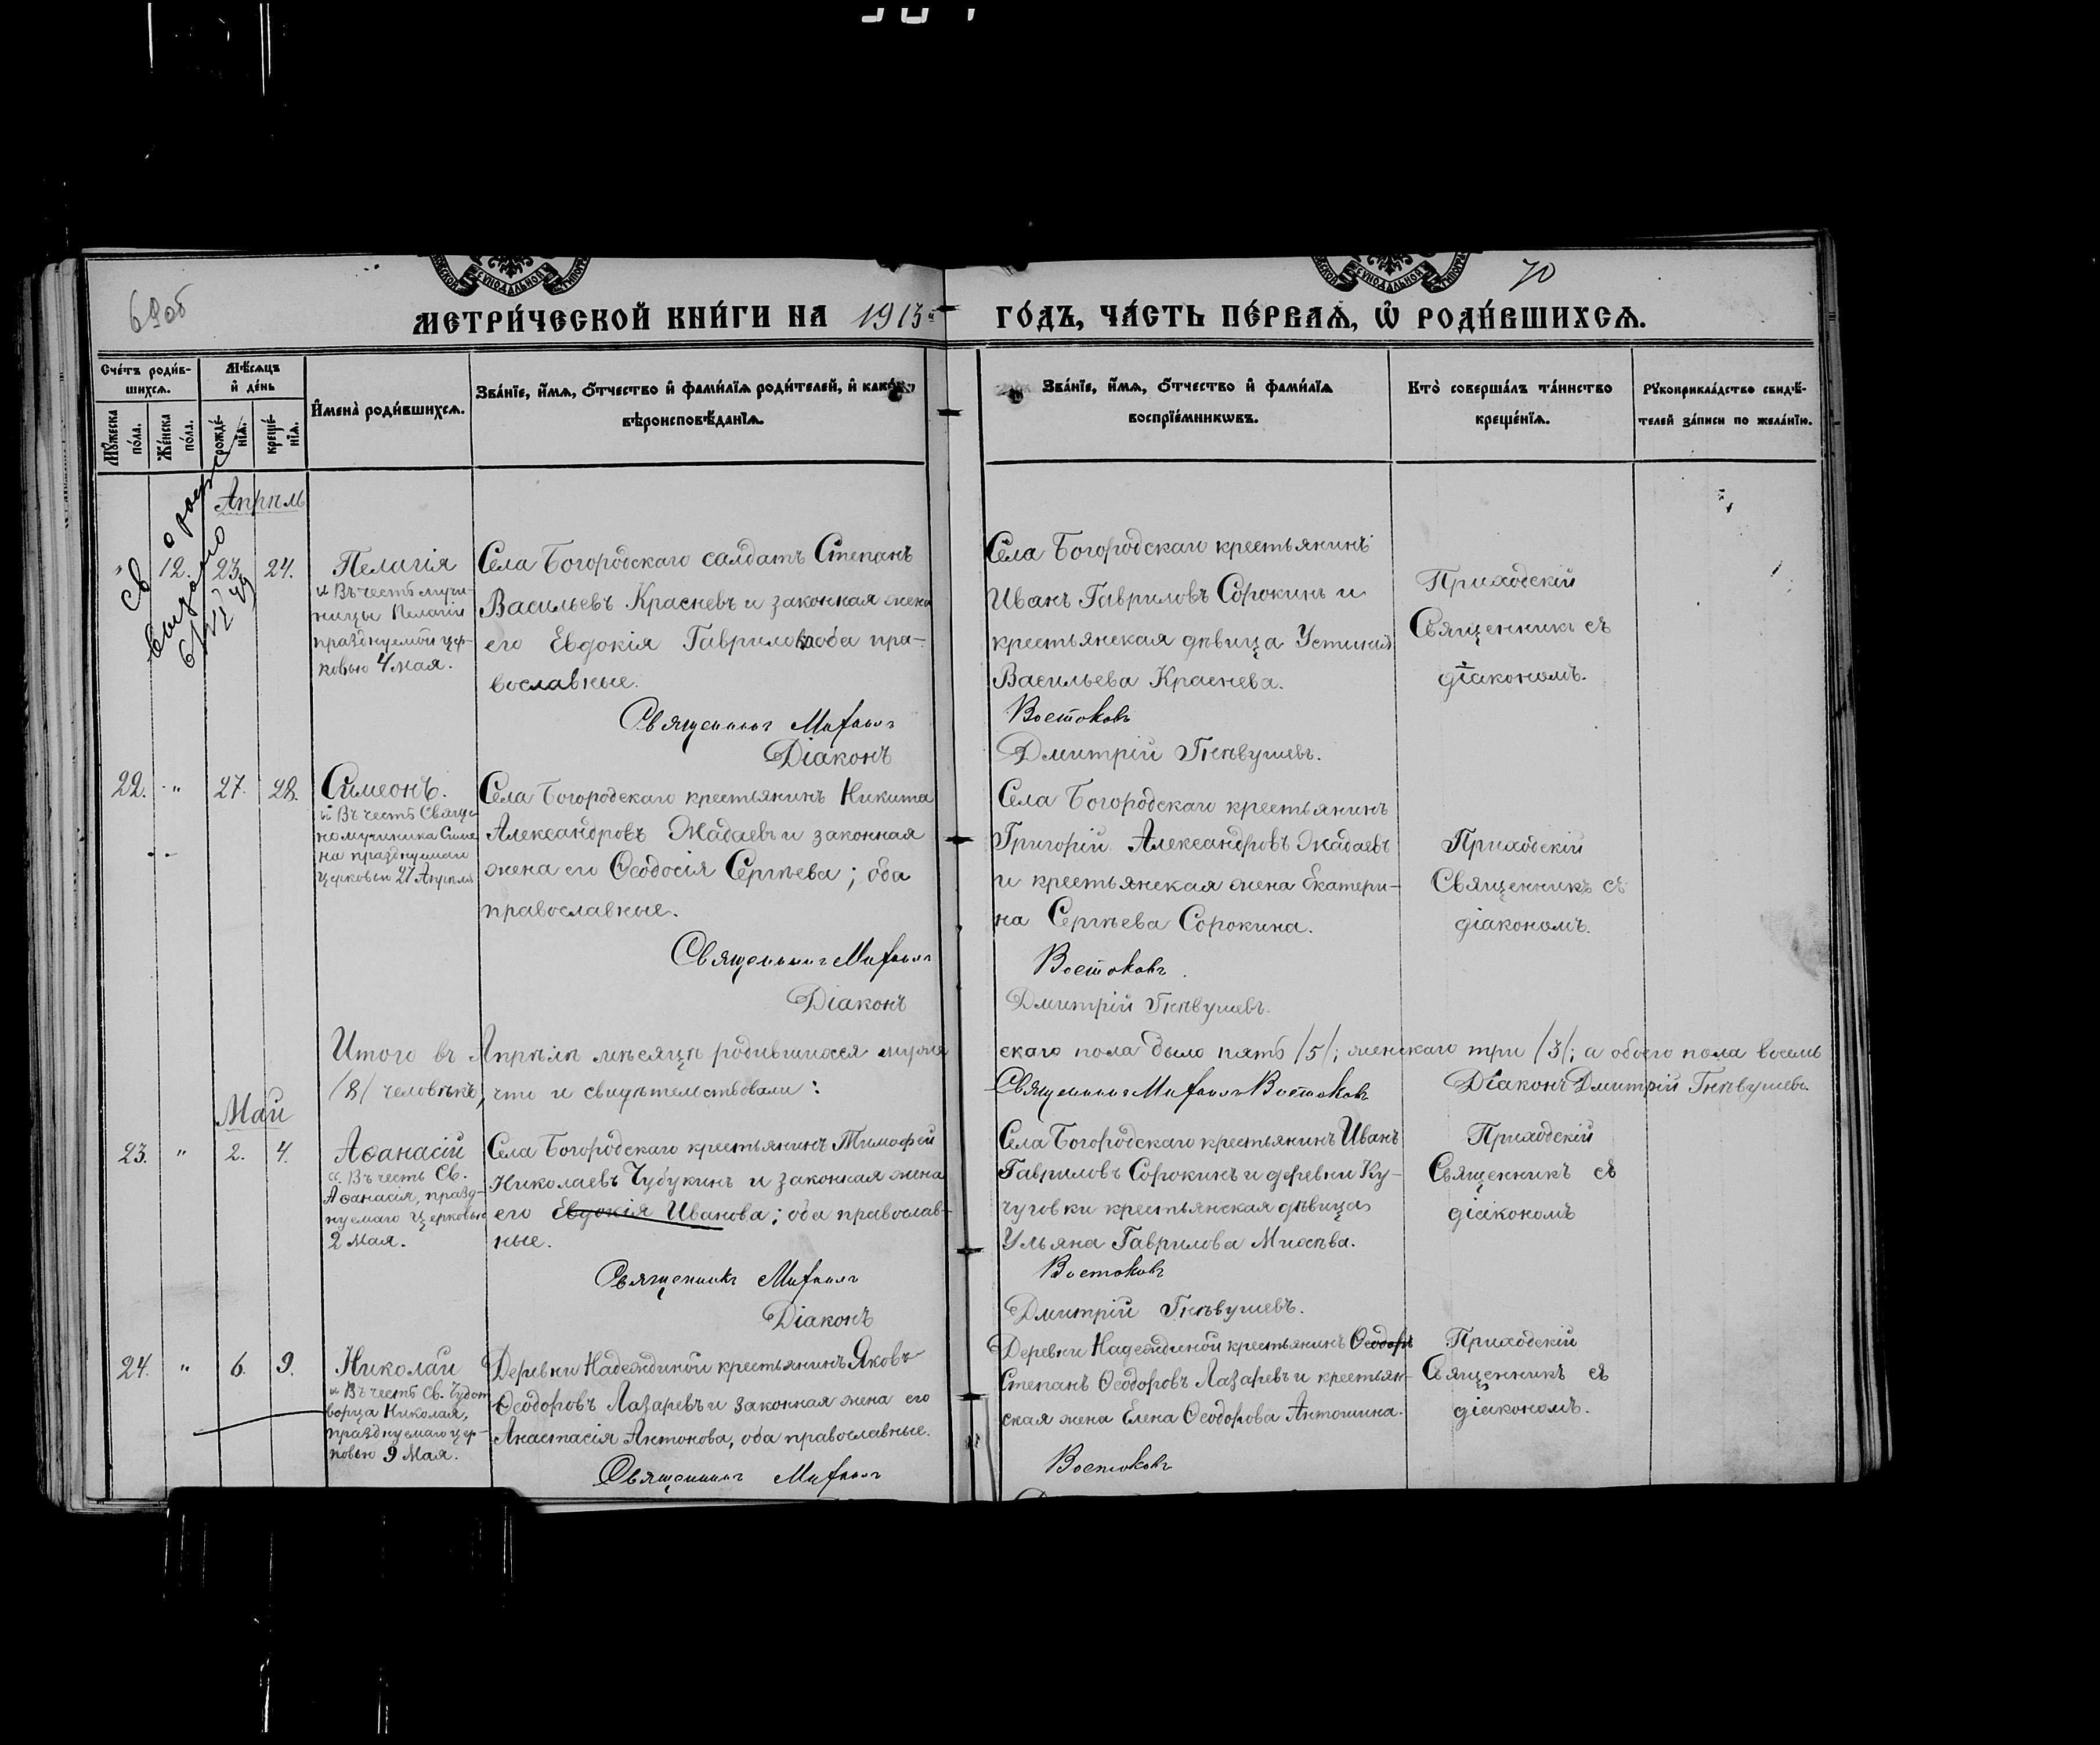 69 об
70
МЕТРИ́ЧЕСКОЙ КНИ́ГИ НА 1913й ГО́ДЪ, ЧА́СТЬ ПЕ́РВАѦ, Ѡ҆ РОДИ́ВШИХСѦ.
Сче́тъ роди́вшихсѧ.
Мꙋ́жеска по́ла.
Же́нска по́ла.
Мѣ́сѧцъ и҆ де́нь
рожде́нїѧ.
креще́нїѧ.
И҆мена̀ роди́вшихсѧ.
Зва́нїе, и҆́мѧ, ѻ҆́тчество и҆ фами́лїѧ роди́телей, и҆ како́гѡ
вѣроисповѣ́данїѧ.
Зва́нїе, и҆́мѧ, ѻ҆́тчество и҆ фами́лїѧ
воспрїе́мникѡвъ.
Кто̀ соверша́лъ та́инство
креще́нїѧ.
Рꙋкоприкла́дство свидѣ́телей за́писи по жела́нїю.
Апрѣль
Св о рожд
выдано
6/VI 49
" 12. 23. 24.
Пелагія
и Въ честь мучи-
ницы Пелагіи
празднуемой цер-
ковью 4 мая.
Села Богородскаго салдатъ Степанъ
Васильевъ Красневъ и законная жена
его Евдокія Гаврилова оба пра-
вославные.
Священникъ Михаилъ
Діаконъ
Села Богородскаго крестьянинъ
Иванъ Гавриловъ Сорокинъ и
крестьянская дѣвица Устинія
Васильева Краснева.
Востоковъ
Дмитрій Гнѣвушевъ.
Приходскій
Священникъ съ
діакономъ.
22. " 27. 28.
Симеонъ.
и Въ честь Свяще
номученика Симе
на празднуемаго
церковью 27 Апрѣля
Села Богородскаго крестьянинъ Никита
Александровъ Жадаевъ и законная
жена его Ѳеодосія Сергѣева; оба
православные.
Священникъ Михаилъ
Діаконъ
Села Богородскаго крестьянинъ
Григорій Александровъ Жадаевъ
и крестьянская жена Екатери-
на Сергѣева Сорокина.
Востоковъ.
Дмитрій Гнѣвушевъ.
Приходскій
Священникъ съ
діакономъ.
Итого въ Апрѣлѣ мѣсяцѣ родившихся муже скаго пола было пять /5/; женскаго три /3/; а обоего пола восемь
/8/ человѣкъ, что и свидѣтельствовали: Священникъ Михаилъ Востоковъ Діаконъ Дмитрій Гнѣвушевъ.
Май
23. " 2. 4.
Аѳанасій
Въ честь Св.
Аѳанасія, празд-
нуемаго церковью
2 Мая.
Села Богородскаго крестьянинъ Тимофей
Николаевъ Чубукинъ и законная жена
его Евдокія Иванова; оба православ-
ные.
Священникъ Михаилъ
Діаконъ
Села Богородскаго крестьянинъ Иванъ
Гавриловъ Сорокинъ и деревни Ку-
чуговки крестьянская дѣвица
Ульяна Гаврилова Михѣева.
Востоковъ
Дмитрій Гнѣвушевъ.
Приходскій
Священникъ съ
діакономъ
24. " 6. 9.
Николай
и Въ честь Св. Чудот
ворца Николая,
празднуемаго цер-
ковью 9 Мая.
Деревни Надеждиной крестьянинъ Яковъ
Ѳеодоровъ Лазаревъ и законная жена его
Анастасія Антонова, оба православные.
Священникъ Михаилъ
Деревни Надеждиной крестьянинъ Ѳеодоръ
Степанъ Ѳеодоровъ Лазаревъ и крестьян-
ская жена Елена Ѳеодорова Антошина.
Востоковъ
Приходскій
Священникъ съ
діакономъ.